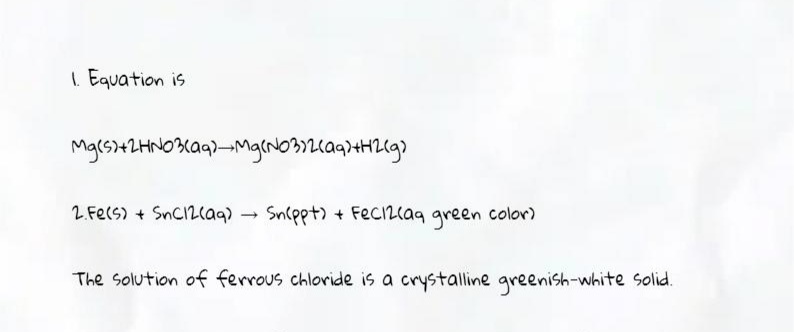 1. Equation is
Mg(s)+2HNO3(aq)→Mg(NO3)2(aq)+H2(g)
2.Fe(s) + SnCl2(aq) → Sn(ppt) + FeCl2(aq green color)
The solution of ferrous chloride is a crystalline greenish-white solid.